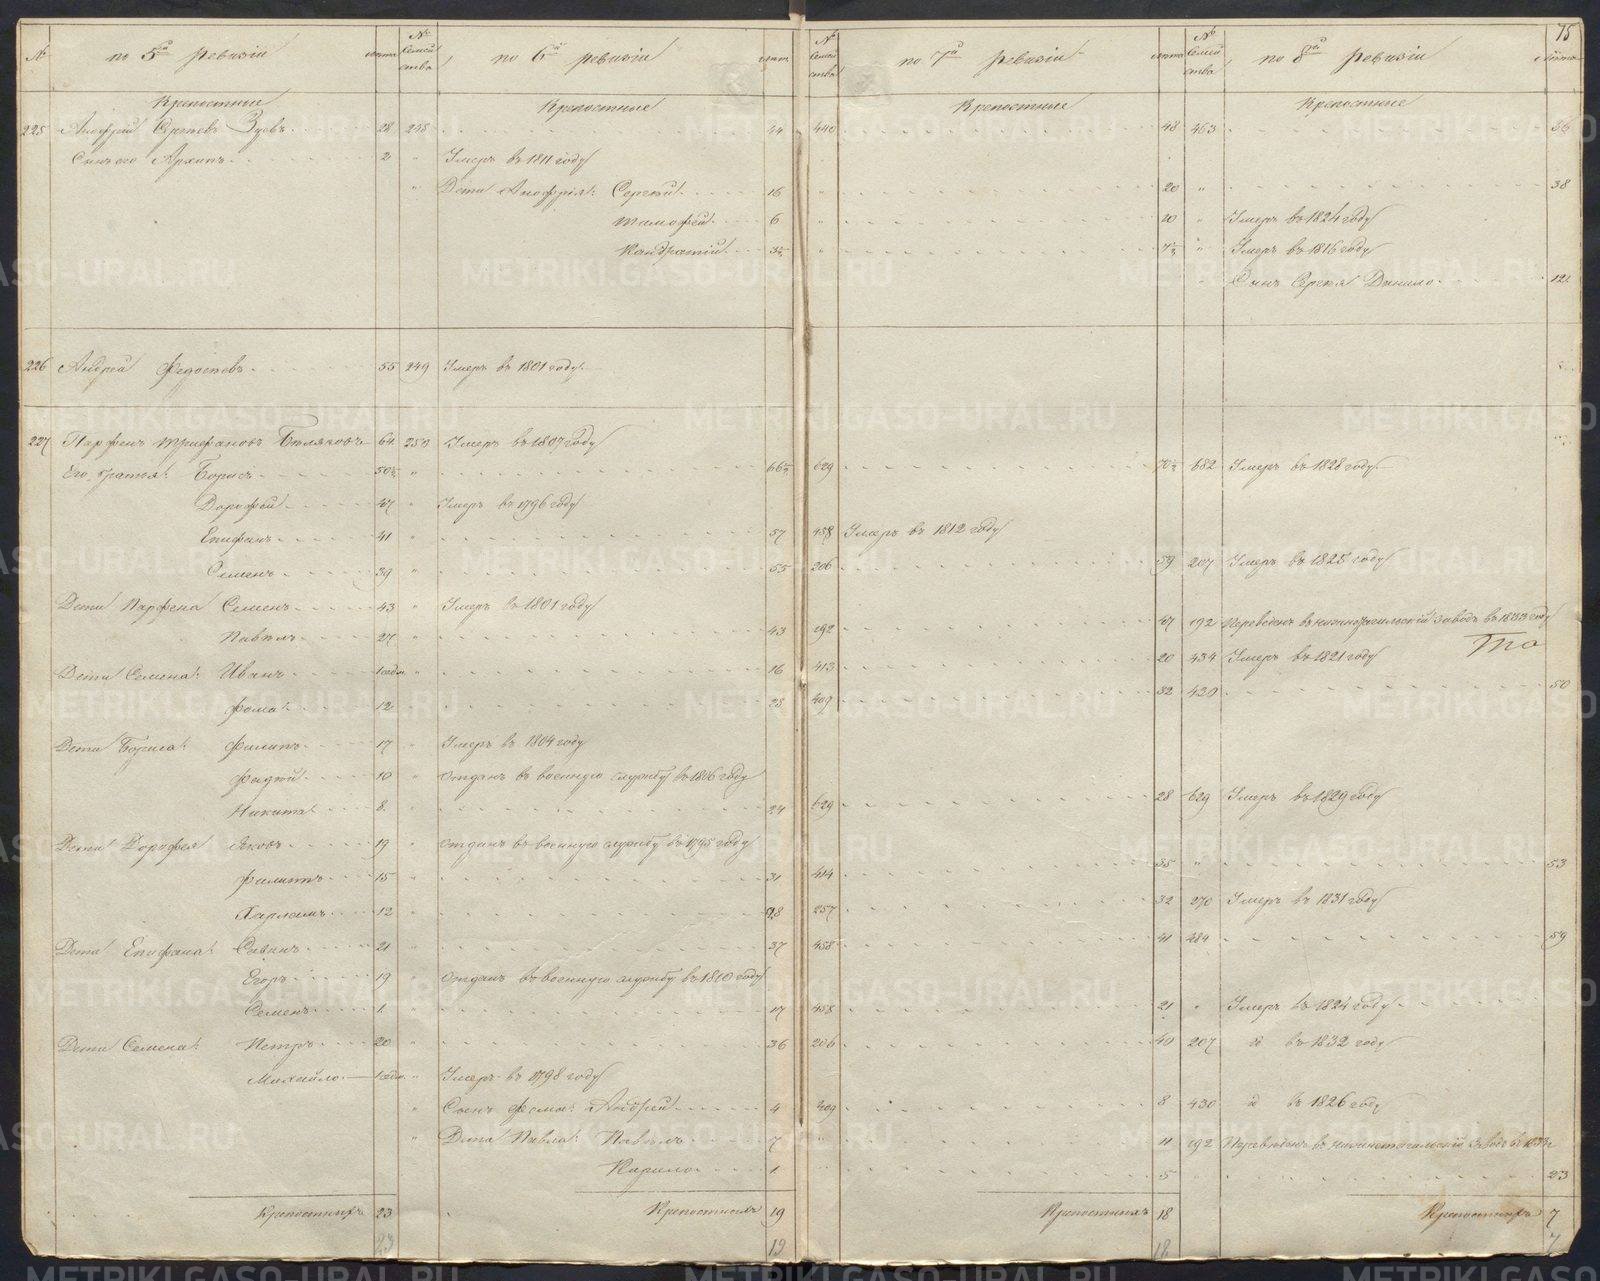 75
№ по 5й ревизіи лѣта № Семей ства по 6й ревизіи лѣта № Семей ства по 7й ревизіи лѣта № Семей ства по 8й ревизіи лѣта
Крепостные Крепостные Крепостные Крепостные
225 Анофрій Сергѣевъ 28 248 44 440 48 463 56
Сынъ его Архипъ 2 " Умеръ въ 1811 году
" Дети Анофрія: Сергѣй 16 " 20 " 38
Тимофей 6 " 10 " Умеръ въ 1824 году
Кандратій " " Умеръ въ 1816 году
Сынъ Сергѣя Данило 12
226 Андрей Федосѣевъ 55 249 Умеръ въ 1801 году
227 Парфенъ Трифановъ Бѣляковъ 64 250 Умеръ въ 1807 году
Его братья: Борисъ 50½ " 66½ 629 70½ 682 Умеръ въ 1828 году
Дорофей 47 " Умеръ въ 1796 году
Епифанъ 41 " 57 458 Умеръ въ 1812 году
Семенъ 39 " 55 206 59 207 Умеръ въ 1825 году
Дети Парфена Семенъ 43 " Умеръ въ 1801 году
Павелъ 27 " 43 192 47 192 Переведенъ въ нижнетагильскій заводъ въ 1833 году
Дети Семена: Иванъ 1 недѣл. " 16 413 20 434 Умеръ въ 1821 году
Фома 12 " 28 409 32 420 50
Дети Бориса: Филипъ 17 " Умеръ въ 1804 году
Фадѣй 10 " Отданъ въ военную службу въ 1806 году
Никита 8 " 24 629 28 629 Умеръ въ 1829 году
Дети Дорофея Яковъ 19 " Отданъ въ военную службу въ 1795 году
Филиппъ 15 " 31 414 35 " 53
Харламъ 12 " 28 257 32 270 Умеръ въ 1831 году
Дети Епифана: Савинъ 21 " 37 458 41 484 59
Егоръ 19 " Отданъ въ военную службу въ 1810 году
Семенъ 1 " 17 458 21 " Умеръ въ 1824 году
Дети Семена: Петръ 20 " 36 206 40 207 въ 1832 году
Михайло 1 недѣл. " Умеръ въ 1798 году
" Сынъ Фомы: Андрей 4 409 8 430 въ 1826 году
" Дети Павла: Павелъ 7 " 11 192 Переведенъ въ нижнетагильскій заводъ въ 1833
Кирило 1 5 23
Крепостныхъ 23 Крепостныхъ 19 Крепостныхъ 18 Крепостныхъ 7
23 19 18 7
METRIKI.GASO-URAL.RU